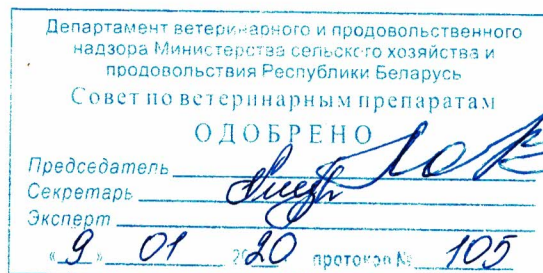 Департамент ветеринарного и продовольственного
надзора Министерства сельского хозяйства и
продовольствия Республики Беларусь
Совет по ветеринарным препаратам
ОДОБРЕНО
Председатель
Секретарь
Эксперт
«9» 01 2020 протокол № 105